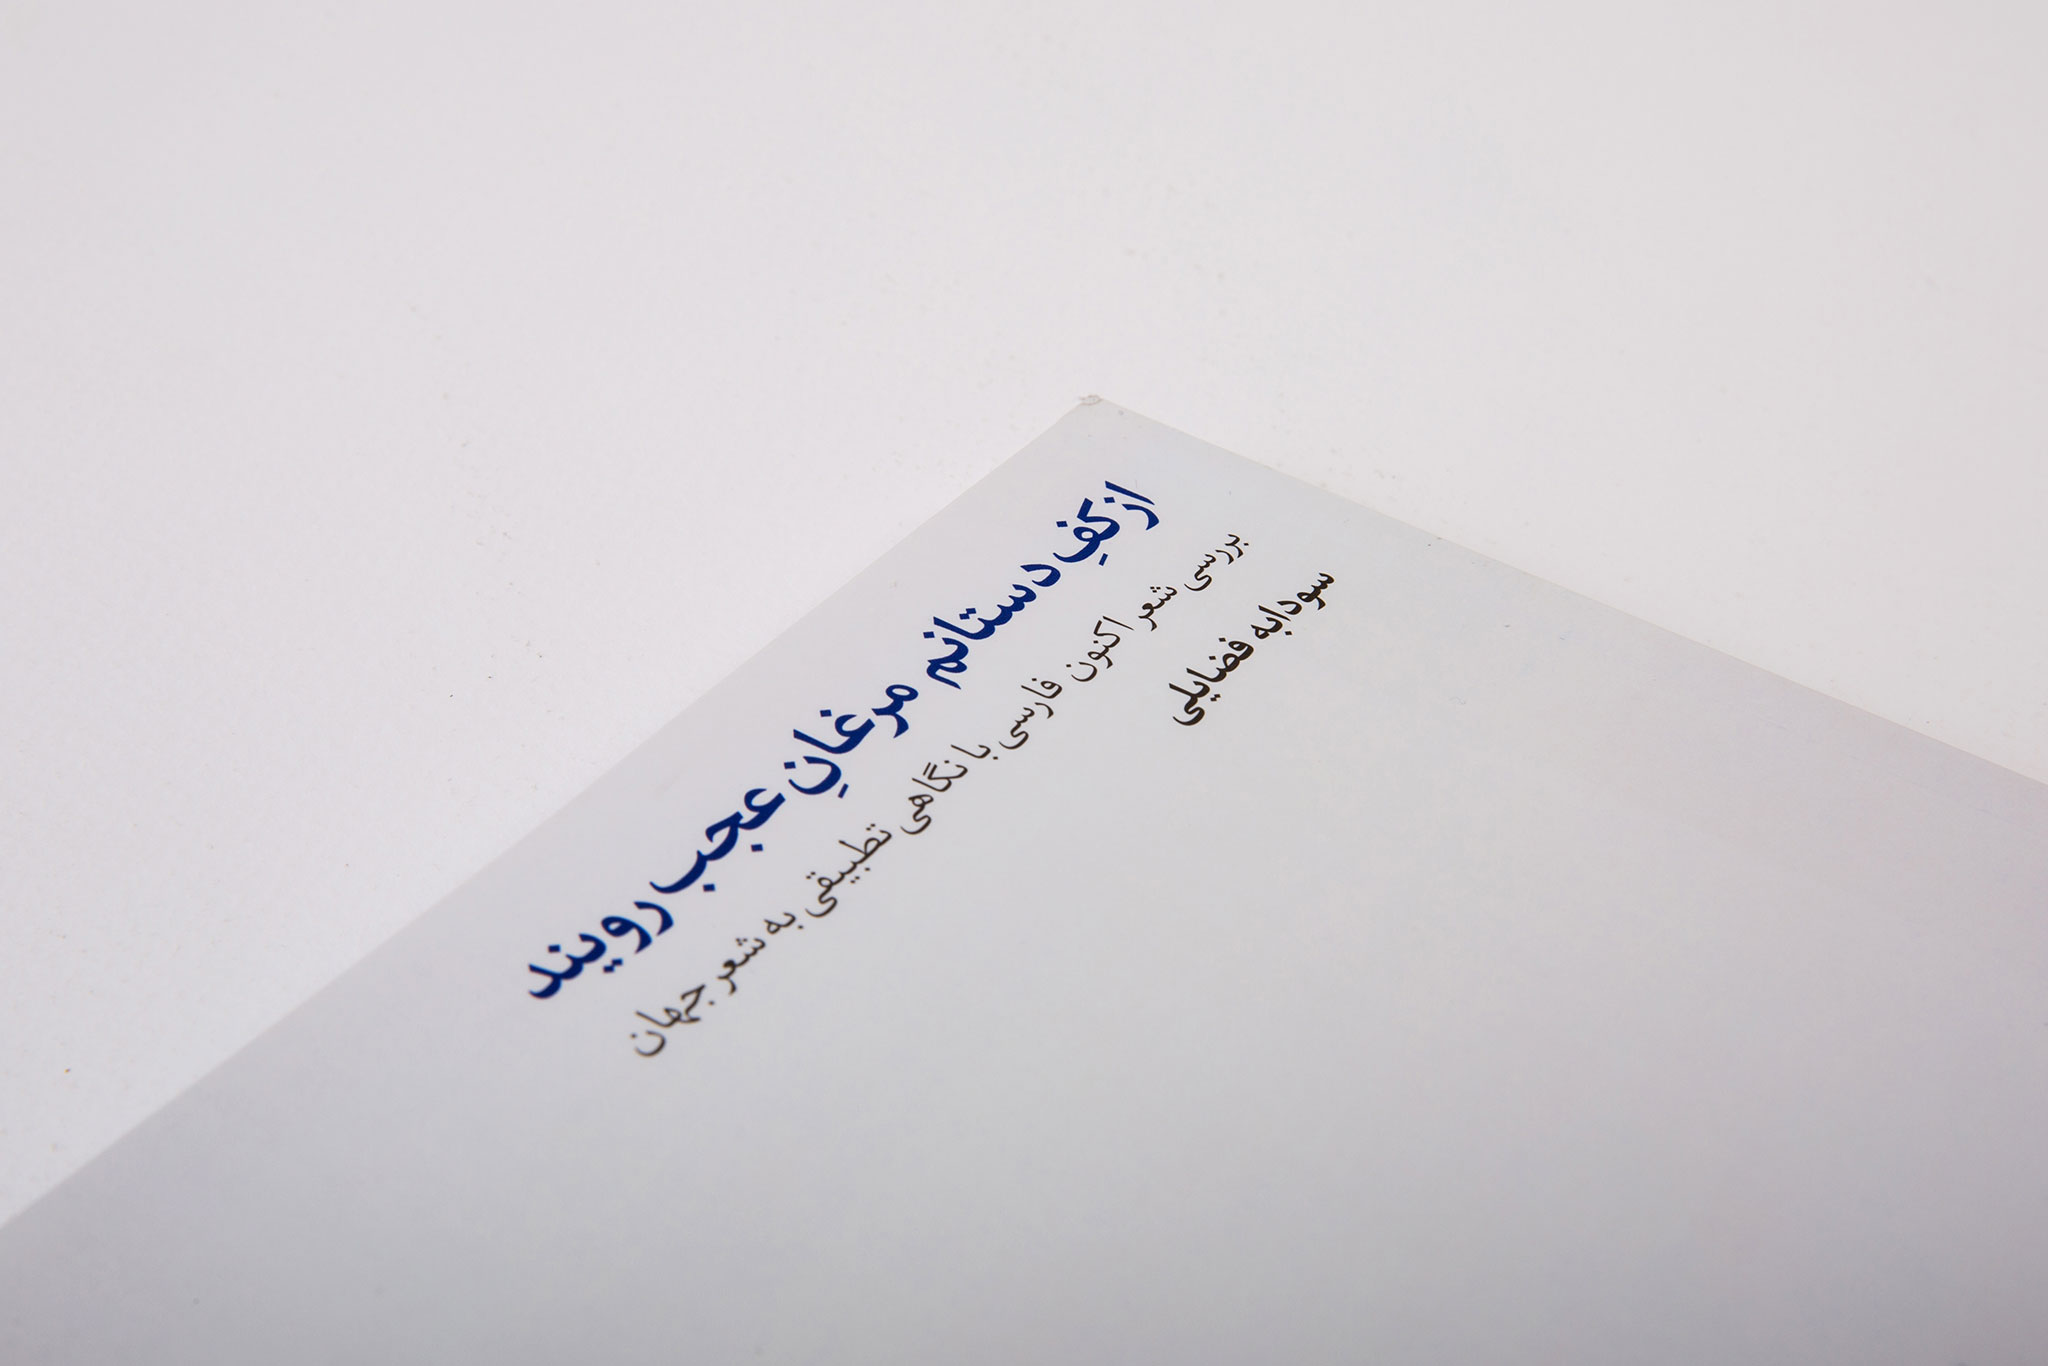 از کفِ دستانم مرغانِ عجب رویند
بررسی شعر اکنون فارسی با نگاهی تطبیقی به شعر جهان
سودابه فضایلی